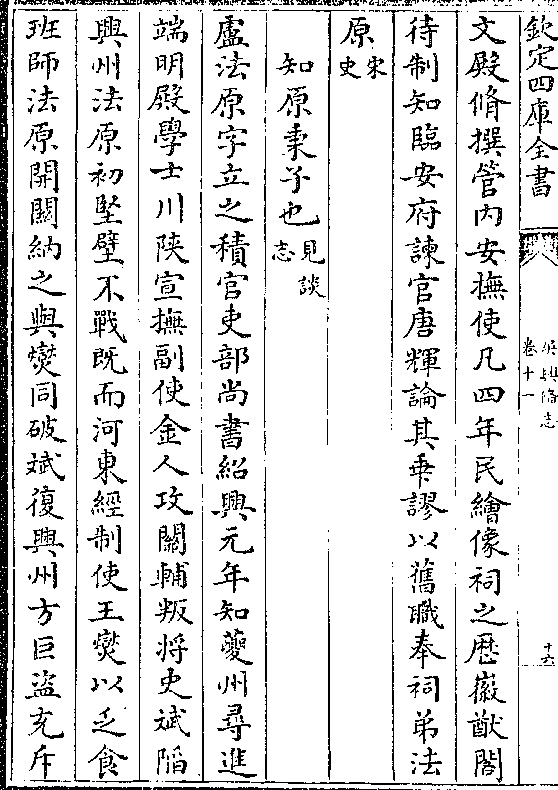 欽定四庫全書
吳興備志
卷十一
十六
文殿脩撰管内安撫使凡四年民繪像祠之歷徽猷閣
待制知臨安府諫官唐輝論其乖謬以舊職奉祠弟法
原宋史
知原秉子也見談志
盧法原字立之積官吏部尚書紹興元年知夔州尋進
端明殿學士川陝宣撫副使金人攻關輔叛將史斌陷
興州法原初堅壁不戰既而河東經制使王燮以乏食
班師法原開關納之與燮同破斌復興州方巨盜充斥